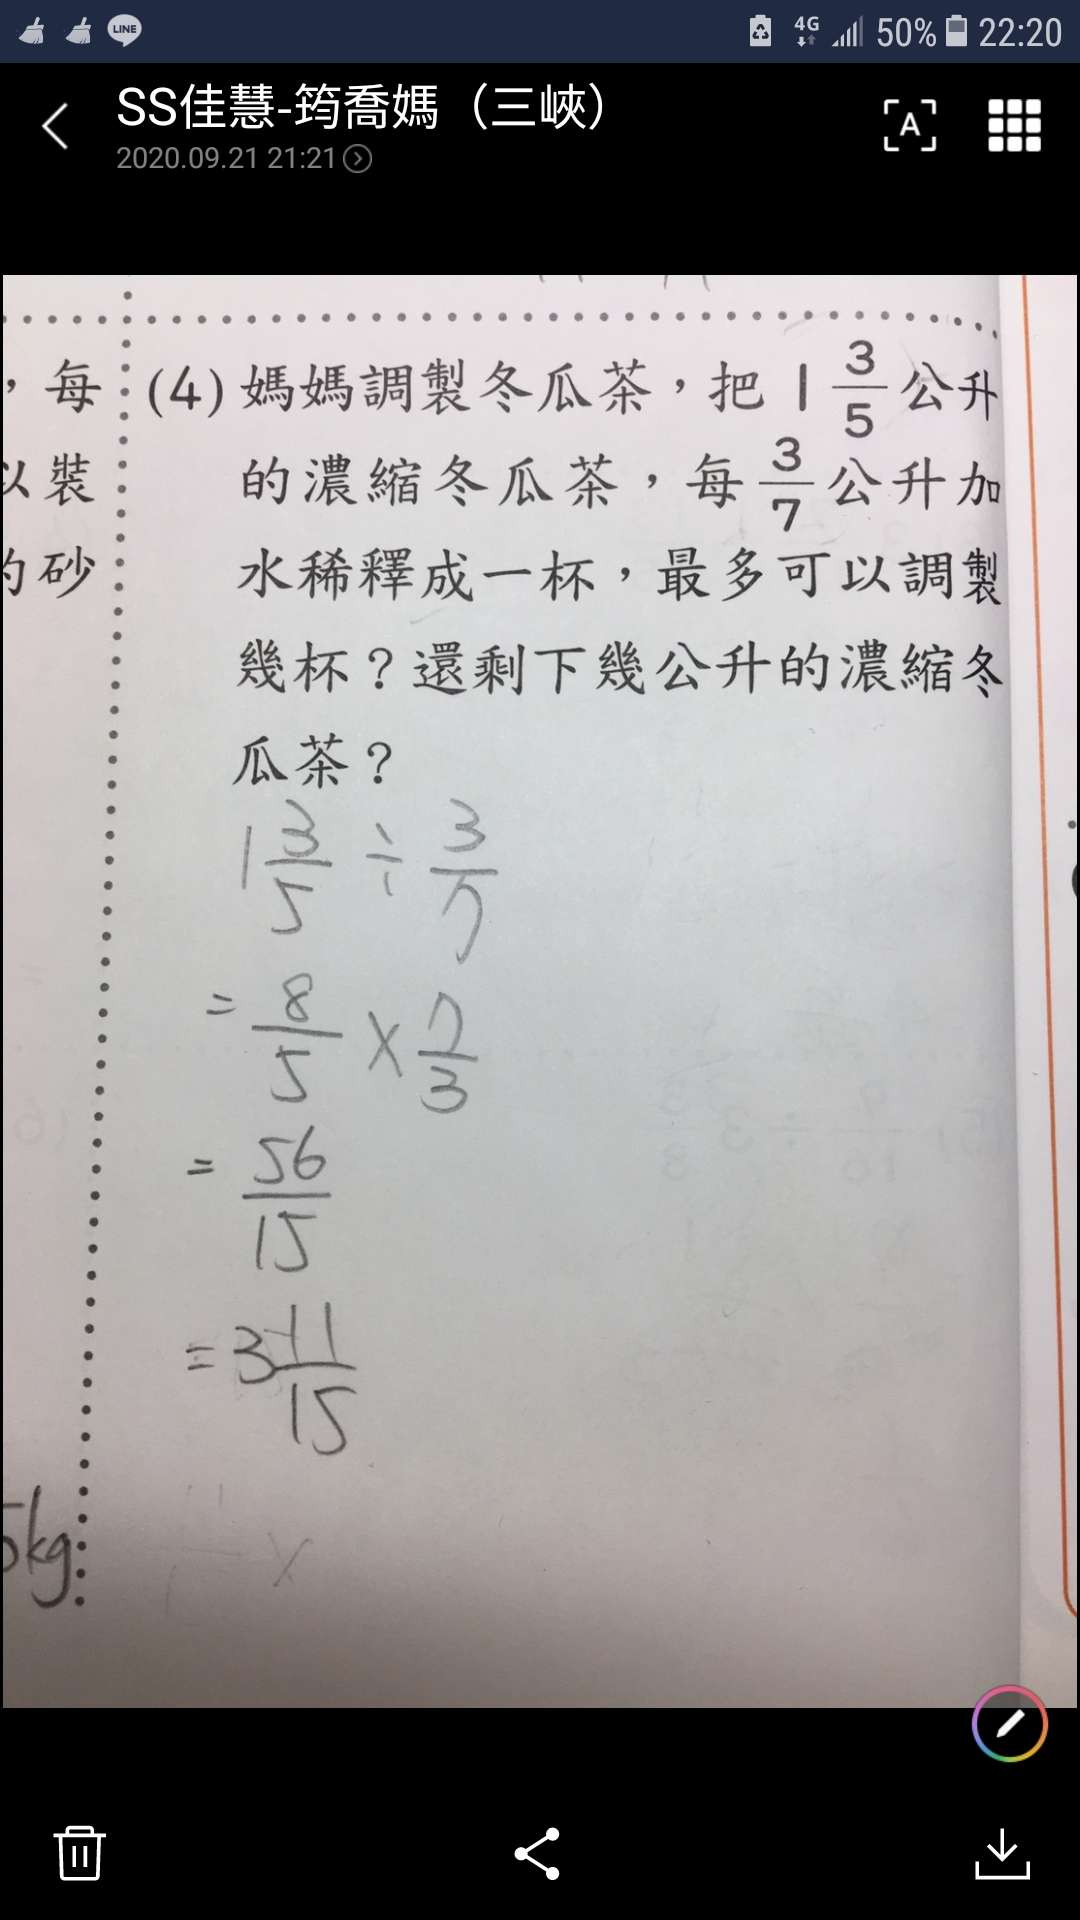 LINE 4G 50% 22:20
SS佳慧-筠喬媽（三峽）
2020.09.21 21:21
A
，每
以裝
的砂
(4) 媽媽調製冬瓜茶，把 1 3/5 公升
的濃縮冬瓜茶，每 3/7 公升加
水稀釋成一杯，最多可以調製
幾杯？還剩下幾公升的濃縮冬
瓜茶？
1 3/5 ÷ 3/7
= 8/5 × 7/3
= 56/15
= 3 11/15
5kg